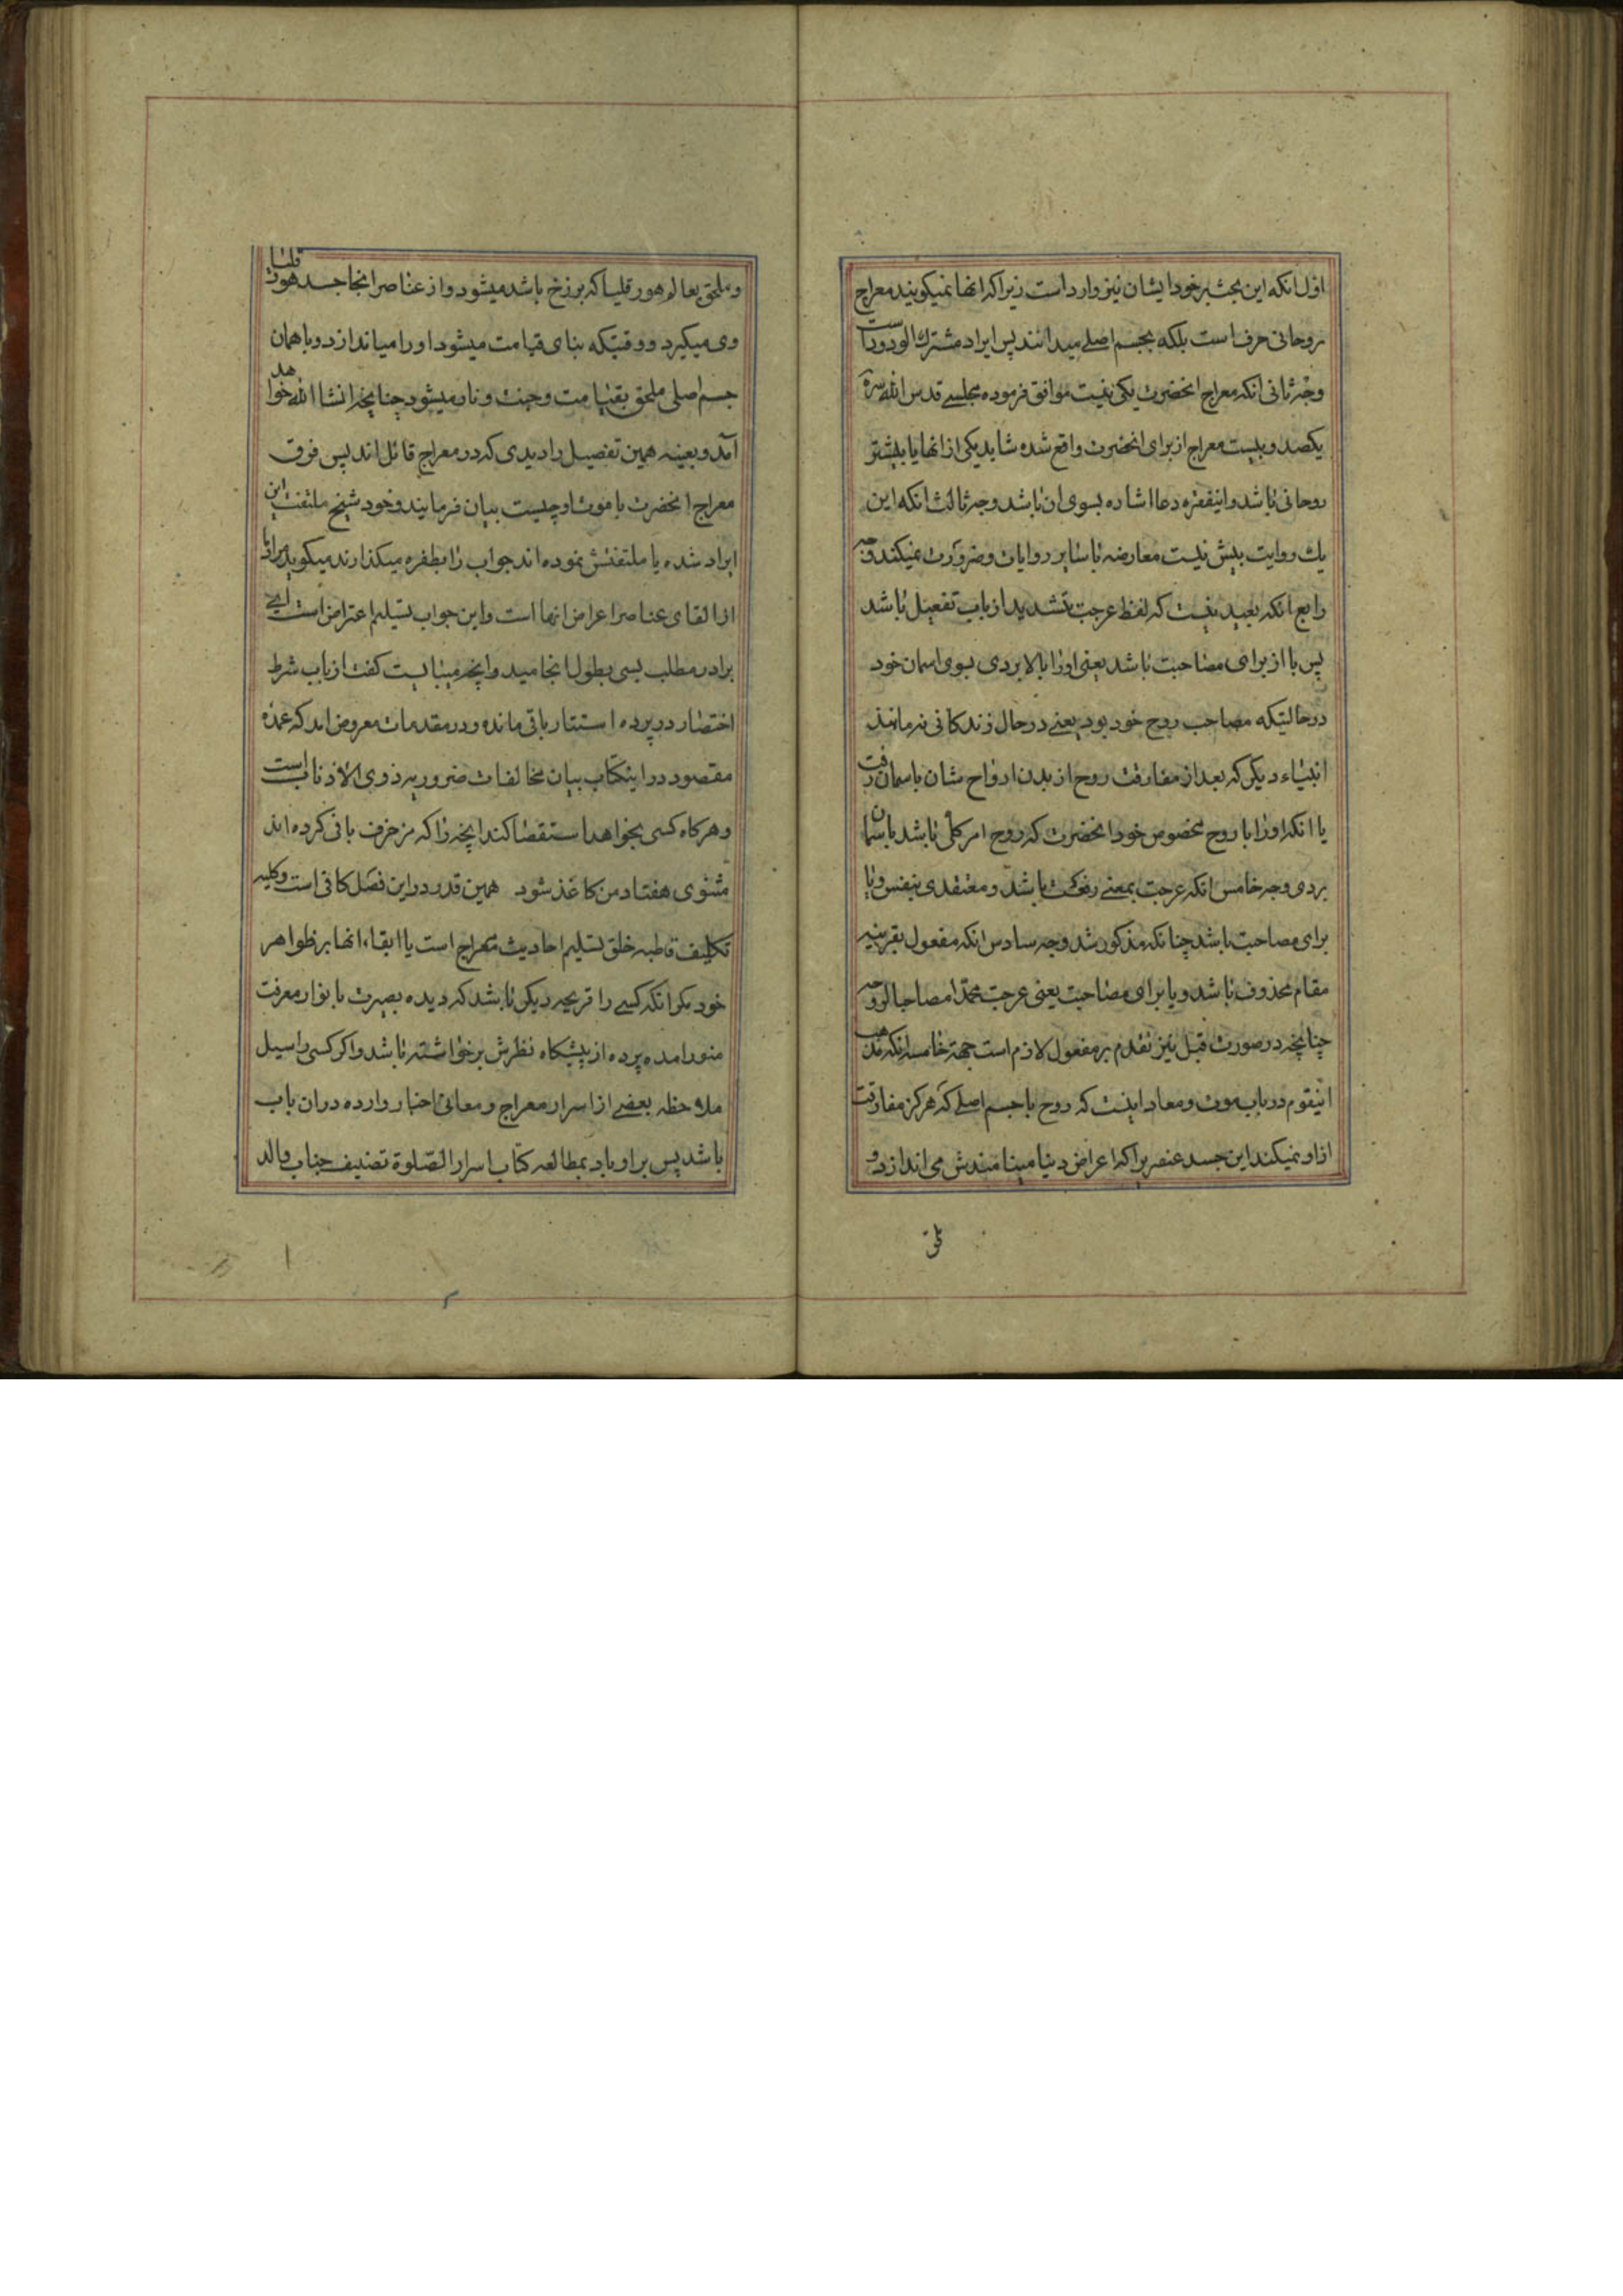 اول انكه این بحث بر خود ایشان نیز وارد است زیرا كه انها نمیكویند معراج
روحانی صرف است بلكه بجسم اصلی میدانند پس ایراد مشترك الورود است
وجه ثانی انكه معراج انحضرت یكی نیست موافق فرموده مجلسی قدس الله سره
یكصد و بیست معراج از برای انحضرت واقع شده شاید یكی از انها یا بیشتر
روحانی باشد و اینفقره دعا اشاره بسوی ان باشد وجه ثالث انكه این
یك روایت بیش نیست معارضه با سایر روایات و ضرورت نمیكند وجه
رابع انكه بعید نیست كه لفظ عرجت بتشدید از باب تفعیل باشد
پس با از برای مصاحبت باشد یعنی اورا بالا بردی بسوی اسمان خود
درحالتیكه مصاحب روح خود بود یعنی در حال زندكانی نه مانند
انبیاء دیكر كه بعد از مفارقت روح از بدن ارواح شان باسمان رفت
یا انكه اورا با روح مخصوص خود انحضرت كه روح امر كلی باشد باسمان
بردی وجه خامس انكه عرجت بمعنی رفعت باشد و متعدی بنفس و با
برای مصاحبت باشد چنانكه مذكور شد وجه سادس انكه مفعول بقرینه
مقام محذوف باشد و با برای مصاحبت یعنی عرجت محمدا مصاحبا لروحه
چنانچه در صورت قبل نیز تقدم بر مفعول لازم است جهة خامسه انكه مذهب
اینقوم در باب موت و معاد اینست كه روح با جسم اصلی كه هركز مفارقت
از او نمیكند این جسد عنصریرا كه اعراض دنیا مینامندش می اندازد و
و ملحق بعالم هورقلیا كه برزخ باشد میشود و از عناصر انجا جسد هورقلیا
وی میكیرد و وقتیكه بنای قیامت میشود اورا میاندازد و با همان
جسم اصلی ملحق بقیامت و جنت و نار میشود چنانچه انشا الله خواهد
آمد و بعینه همین تفصیل را دیدی كه در معراج قائل اند پس فرق
معراج انحضرت با موت او چیست بیان فرمایند و خود شیخ ملتفت این
ایراد شده یا ملتفتش نموده اند جواب را بطفره میكذارند میكوید مراد ما
از القای عناصر اعراض انها است و این جواب تسلیم اعتراض است ای
برادر مطلب بسی بطول انجامید و انچه میبایست كفت از باب شرط
اختصار در پرده استتار باقی مانده و در مقدمات معروض امد كه عمده
مقصود در اینكتاب بیان مخالفات ضروریه ذوی الاذناب است
و هركاه كسی بخواهد استقصا كند انچه را كه مزخرف بافی كرده اند
مثنوی هفتاد من كاغذ شود همین قدر در این فصل كافی است و كلیه
تكلیف قاطبه خلق تسلیم احادیث معراج است یا ابقاء انها بر ظواهر
خود مكر انكه كسی را قریحه دیكر باشد كه دیده بصیرت با نوار معرفت
منور امده پرده از پیشكاه نظرش برخواسته باشد و اكر كسی را میل
ملاحظه بعضی از اسرار معراج و معانی اخبار وارده در ان باب
باشد پس بر او باد بمطالعه كتاب اسرار الصلوة تصنیف جناب والد